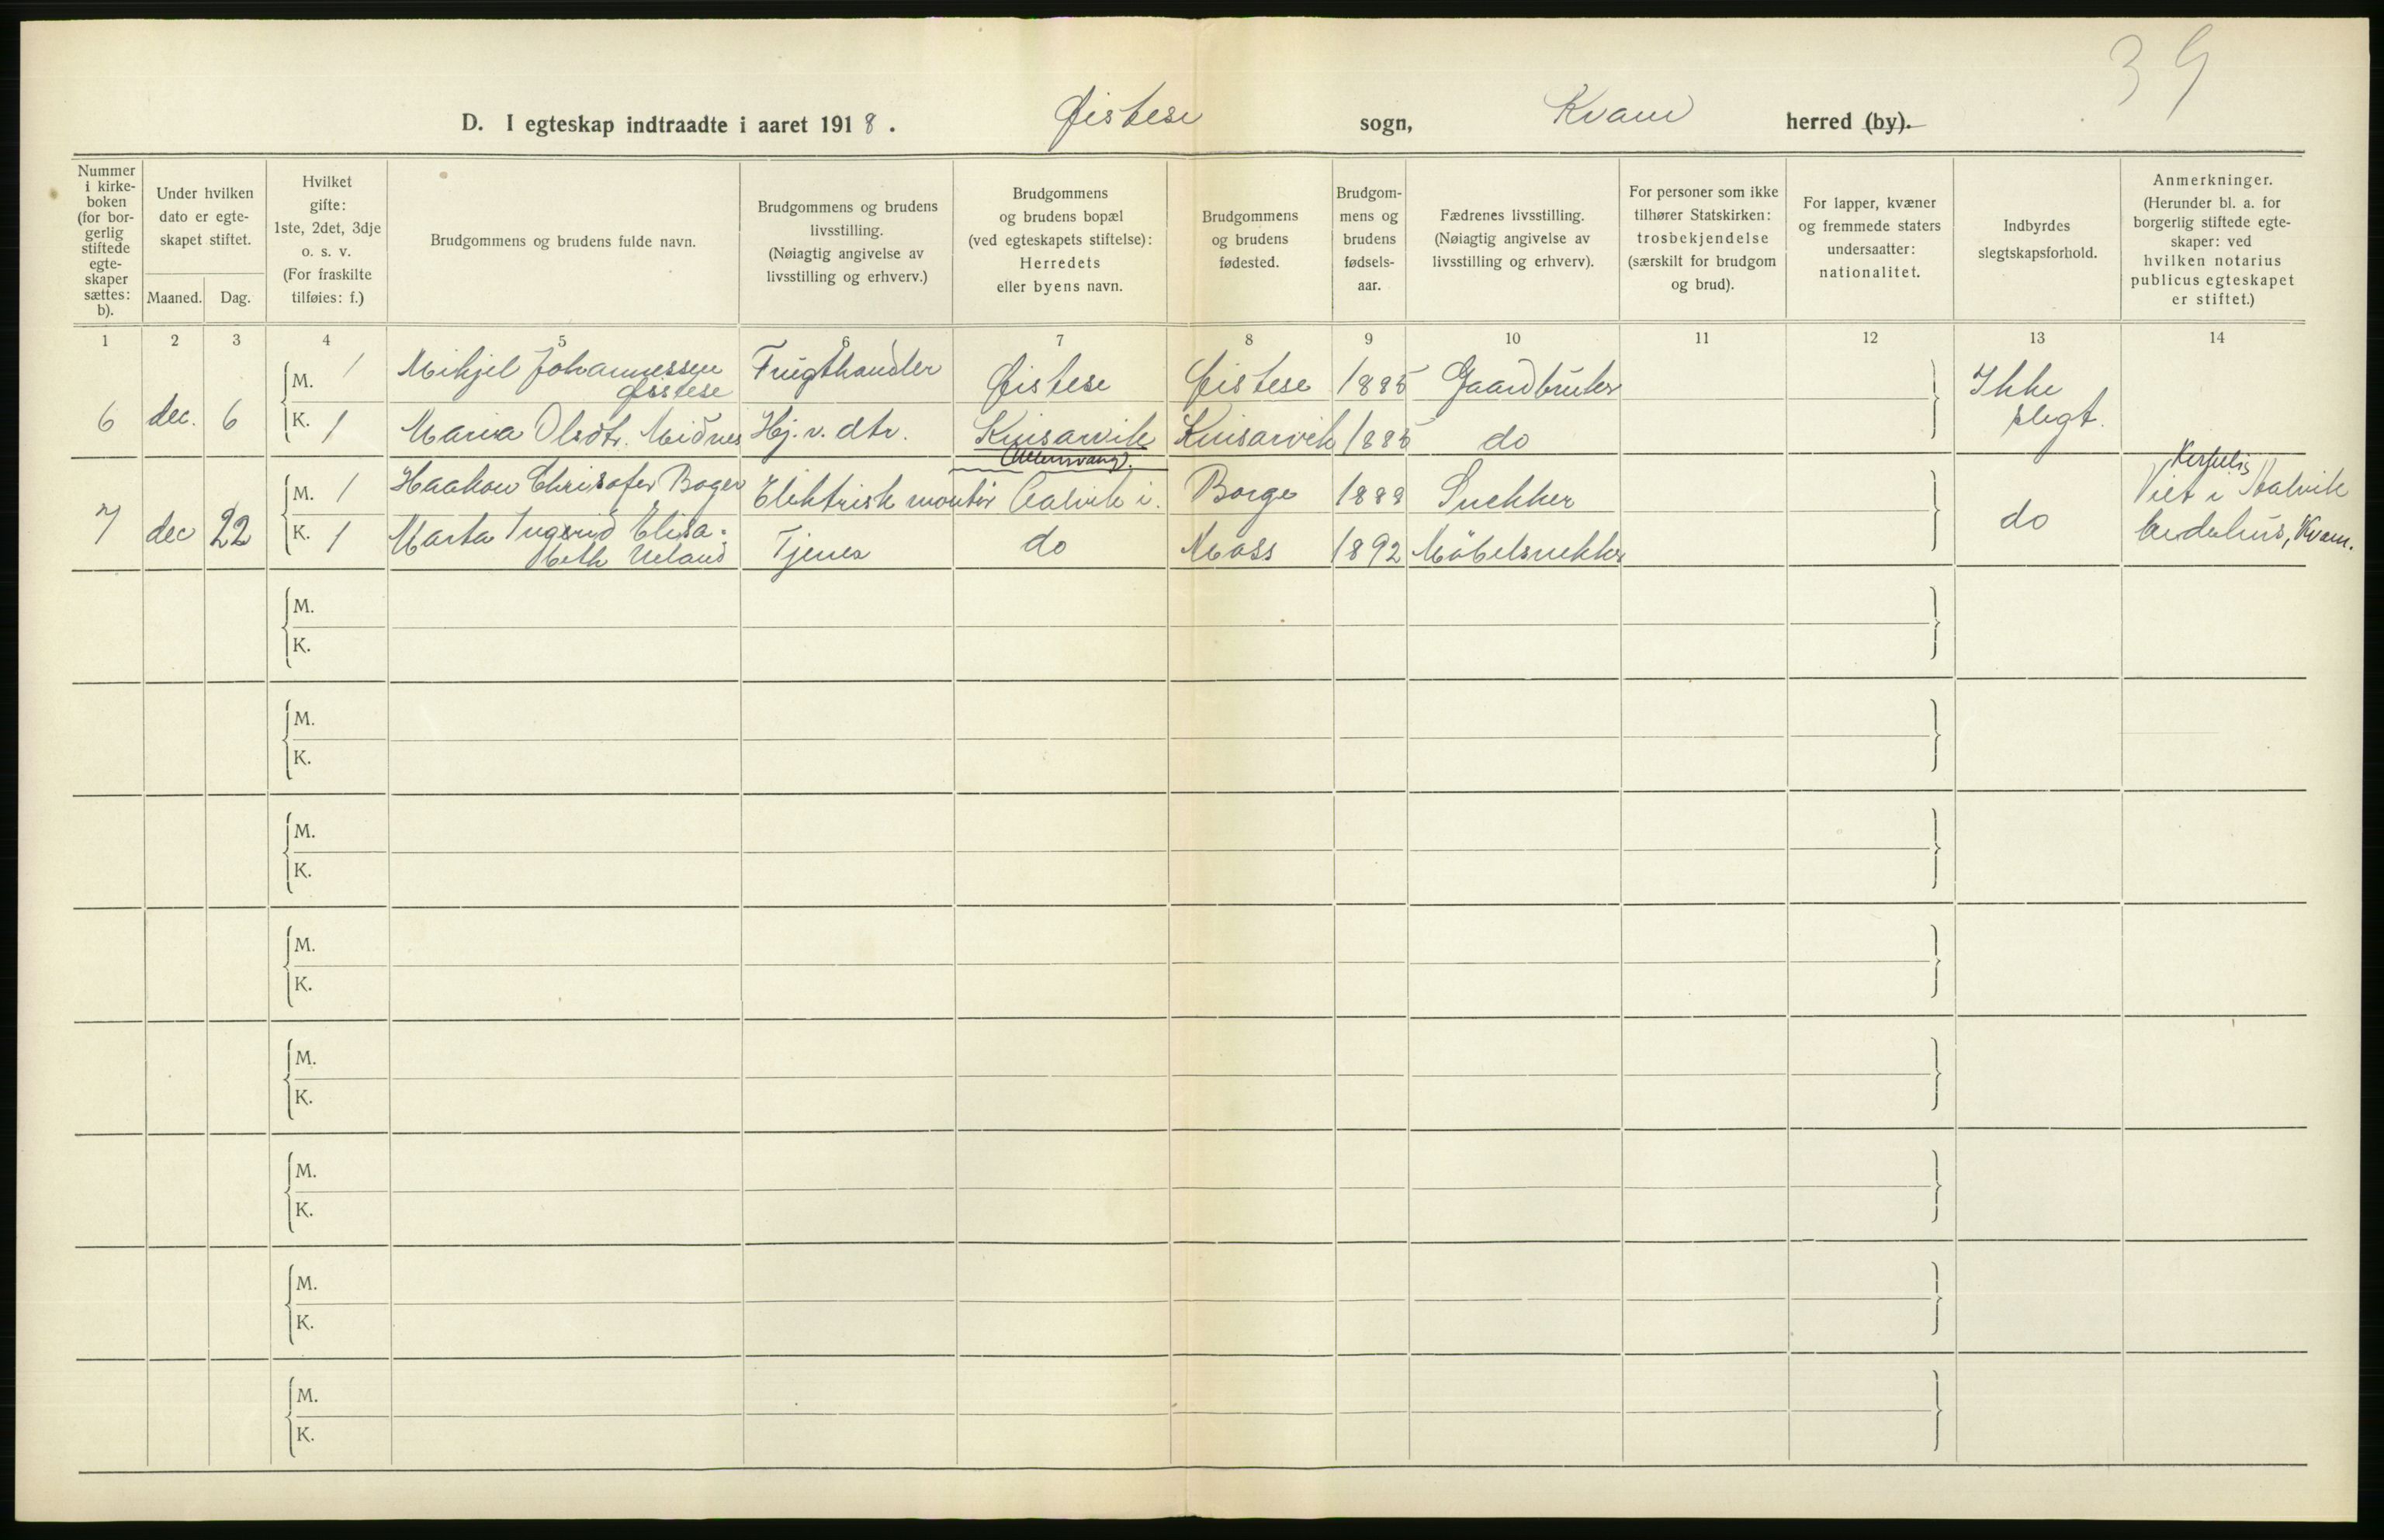 39
D. I egteskap indtraadte i aaret 1918. Øistese sogn, Kvam herred (by).
Nummer i kirke- boken (for bor- gerlig stiftede egte- skaper sættes: b).
Under hvilken dato er egte- skapet stiftet.
Maaned. Dag.
Hvilket gifte: 1ste, 2det, 3dje o. s. v. (For fraskilte tilføies: f.)
Brudgommens og brudens fulde navn.
Brudgommens og brudens livsstilling. (Nøiagtig angivelse av livsstilling og erhverv.)
Brudgommens og brudens bopæl (ved egteskapets stiftelse): Herredets eller byens navn.
Brudgommens og brudens fødested.
Brudgom- mens og brudens fødsels- aar.
Fædrenes livsstilling. (Nøiagtig angivelse av livsstilling og erhverv).
For personer som ikke tilhører Statskirken: trosbekjendelse (særskilt for brudgom og brud).
For lapper, kvæner og fremmede staters undersaatter: nationalitet.
Indbyrdes slegtskapsforhold.
Anmerkninger. (Herunder bl. a. for borgerlig stiftede egte- skaper: ved hvilken notarius publicus egteskapet er stiftet.)
1 2 3 4 5 6 7 8 9 10 11 12 13 14
6 dec. 6
M. 1 Mikjel Johannessen Øistese Frugthandler Øistese Øistese 1885 Gaardbruker
K. 1 Maria Olsdtr. Midnes Hj. v. dtr. Kinsarvik (Ullensvang). Kinsarvik 1885 do
Ikke slegt.
7 dec 22
M. 1 Haakon Chrisofer Boger Elektrisk montör Aalvik i. Borge 1888 Snekker
K. 1 Marta Ingerid Elisa- beth Ueland Tjener do Moss 1892 Möbelsnekker
do
Viet i Aalvik
bedehus, Kvam.
M.
K.
M.
K.
M.
K.
M.
K.
M.
K.
M.
K.
M.
K.
M.
K.